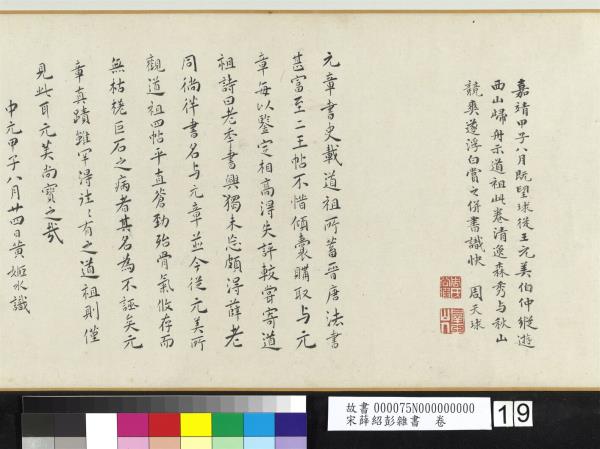 嘉靖甲子八月既望球從王元美伯仲縱遊
西山歸舟示道祖此卷清逸森秀与秋山
競爽遂浮白賞之併書識快 周天球
元章書史載道祖所蓄晉唐法書
甚富至二王帖不惜傾囊購取与元
章每以鑒定相高得失評較嘗寄道
祖詩曰老來書興獨未忘頗得薛老
同徜徉書名与元章並今從元美所
觀道祖四帖平直蒼勁殆骨氣攸存而
無枯硬巨石之病者其名為不誣矣元
章真蹟雖罕得往々有之道祖則僅
見此耳元美尚寶之哉
中元甲子八月廿四日黃姬水識
故書 000075N000000000
宋薛紹彭雜書 卷
19